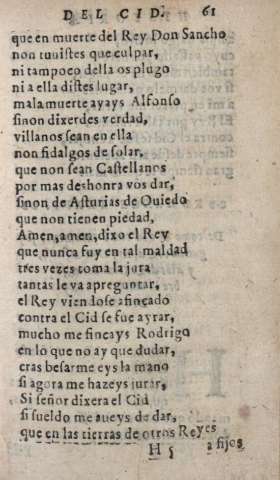 DEL CID. 61
que en muerte del Rey Don Sancho
non tuuistes que culpar,
ni tampoco della os plugo
ni a ella distes lugar,
mala muerte ayays Alfonso
sinon dixerdes verdad,
villanos sean en ella
non fidalgos de solar,
que non sean Castellanos
por mas deshonra vos dar,
sinon de Asturias de Ouiedo
que non tienen piedad,
Amen, amen, dixo el Rey
que nunca fuy en tal maldad
tres vezes toma la jura
tantas le va apreguntar,
el Rey viendose afincado
contra el Cid se fue ayrar,
mucho me fincays Rodrigo
en lo que no ay que dudar,
cras besarme eys la mano
si agora me hazeys jurar,
Si señor dixera el Cid
si sueldo me aueys de dar,
que en las tierras de otros Reyes
H 5 a fijos